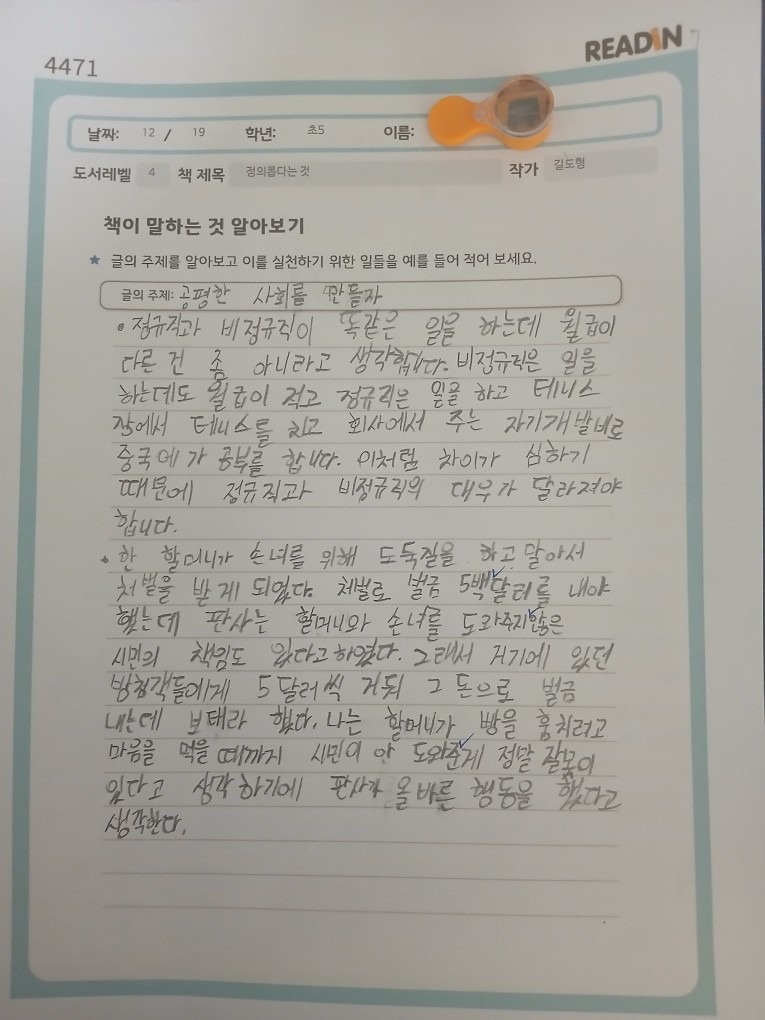 4471
READiN
날짜: 12 / 19 학년: 초5 이름:
도서레벨 4 책 제목 정의롭다는 것 작가 길도형
책이 말하는 것 알아보기
★ 글의 주제를 알아보고 이를 실천하기 위한 일들을 예를 들어 적어 보세요.
글의 주제: 공평한 사회를 만들자
• 정규직과 비정규직이 똑같은 일을 하는데 월급이
다른 건 좀 아니라고 생각합니다. 비정규직은 일을
하는데도 월급이 적고 정규직은 일을 하고 테니스
장에서 테니스를 치고 회사에서 주는 자기개발비로
중국어 공부를 합니다. 이처럼 차이가 심하기
때문에 정규직과 비정규직의 대우가 달라져야
합니다.
• 한 할머니가 손녀를 위해 도둑질을 하고 말아서
처벌을 받게 되었다. 처벌로 벌금 5백달러를 내야
했는데 판사는 할머니와 손녀를 도와주지않은
시민의 책임도 있다고하였다. 그래서 거기에 있던
방청객들에게 5달러씩 거둬 그 돈으로 벌금
내는데 보태라 했다. 나는 할머니가 빵을 훔치려고
마음을 먹을 때까지 시민이 안 도와준게 정말 잘못이
있다고 생각하기에 판사가 올바른 행동을 했다고
생각한다.